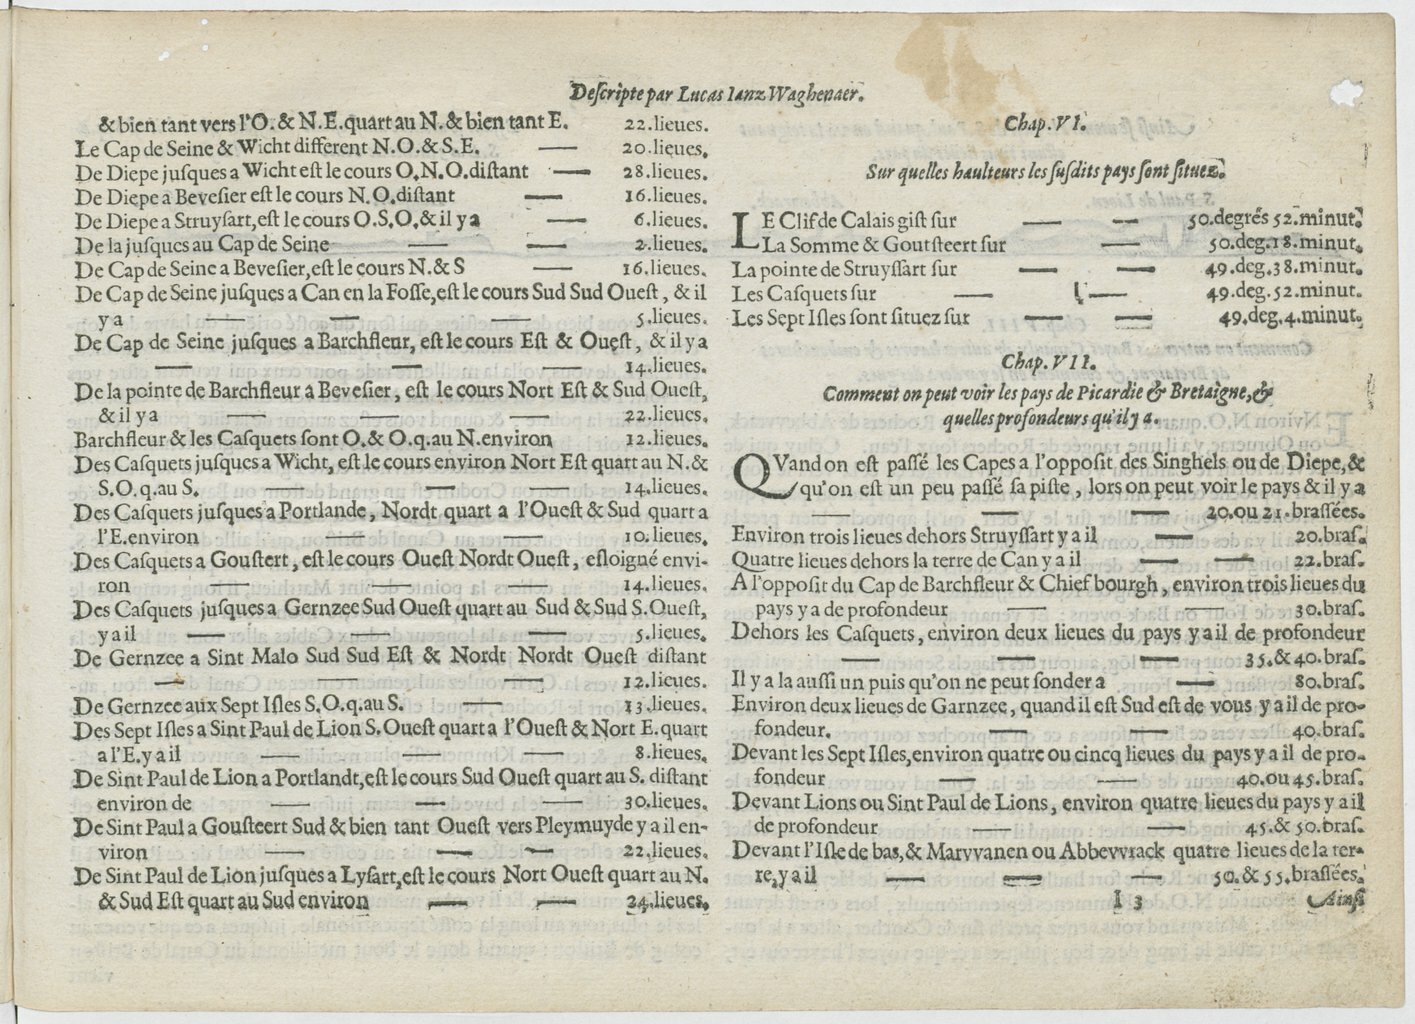 Descripte par Lucas Ianz Waghenaer.
& bien tant vers l'O. & N.E. quart au N. & bien tant E. 22.lieues.
Le Cap de Seine & Wicht different N.O. & S.E. — 20.lieues.
De Diepe jusques a Wicht est le cours O.N.O. distant — 28.lieues.
De Diepe a Bevesier est le cours N.O. distant — 16.lieues.
De Diepe a Struysart, est le cours O.S.O, & il y a — 6.lieues.
De la jusques au Cap de Seine — — 2.lieues.
De Cap de Seine a Bevesier, est le cours N. & S — 16.lieues.
De Cap de Seine jusques a Can en la Fosse, est le cours Sud Sud Ouest, & il
y a — — — 5.lieues.
De Cap de Seine jusques a Barchfleur, est le cours Est & Ouest, & il y a
— — 14.lieues.
De la pointe de Barchfleur a Bevesier, est le cours Nort Est & Sud Ouest,
& il y a — — — 22.lieues.
Barchfleur & les Casquets sont O. & O.q.au N. environ 12.lieues.
Des Casquets jusques a Wicht, est le cours environ Nort Est quart au N. &
S.O.q.au S. — — — 14.lieues.
Des Casquets jusques a Portlande, Nordt quart a l'Ouest & Sud quart a
l'E. environ — — 10.lieues.
Des Casquets a Goustert, est le cours Ouest Nordt Ouest, esloigné envi-
ron — — — 14.lieues.
Des Casquets jusques a Gernzee Sud Ouest quart au Sud & Sud S. Ouest,
y a il — — — 5.lieues.
De Gernzee a Sint Malo Sud Sud Est & Nordt Nordt Ouest distant
— — — 12.lieues.
De Gernzee aux Sept Isles S.O.q.au S. — 13.lieues.
Des Sept Isles a Sint Paul de Lion S. Ouest quart a l'Ouest & Nort E. quart
a l'E. y a il — — — 8.lieues.
De Sint Paul de Lion a Portlandt, est le cours Sud Ouest quart au S. distant
environ de — — — 30.lieues.
De Sint Paul a Gousteert Sud & bien tant Ouest vers Pleymuyde y a il en-
viron — — — 22.lieues.
De Sint Paul de Lion jusques a Lysart, est le cours Nort Ouest quart au N.
& Sud Est quart au Sud environ — — 24.lieues.
Chap. VI.
Sur quelles haulteurs les susdits pays sont situez.
LE Clif de Calais gist sur — — 50.degrés 52.minut.
La Somme & Goutsteert sur — 50.deg.18.minut.
La pointe de Struyssart sur — — 49.deg.38.minut.
Les Casquets sur — — 49.deg.52.minut.
Les Sept Isles sont situez sur — — 49.deg.4.minut.
Chap. VII.
Comment on peut voir les pays de Picardie & Bretaigne, &
quelles profondeurs qu'il y a.
QVand on est passé les Capes a l'opposit des Singhels ou de Diepe, &
qu'on est un peu passé sa piste, lors on peut voir le pays & il y a
— — — 20.ou 21.brassées.
Environ trois lieues dehors Struyssart y a il — 20.bras.
Quatre lieues dehors la terre de Can y a il — 22.bras.
A l'opposit du Cap de Barchfleur & Chief bourgh, environ trois lieues du
pays y a de profondeur — — 30.bras.
Dehors les Casquets, environ deux lieues du pays y a il de profondeur
— — — 35.& 40.bras.
Il y a la aussi un puis qu'on ne peut sonder a — 80.bras.
Environ deux lieues de Garnzee, quand il est Sud est de vous y a il de pro-
fondeur. — — — 40.bras.
Devant les Sept Isles, environ quatre ou cincq lieues du pays y a il de pro-
fondeur — — 40.ou 45.bras.
Devant Lions ou Sint Paul de Lions, environ quatre lieues du pays y a il
de profondeur — — 45.& 50.bras.
Devant l'Isle de bas, & Marvvanen ou Abbevvrack quatre lieues de la ter-
re, y a il — — — 50.& 55.brassées.
I 3 Ainsi